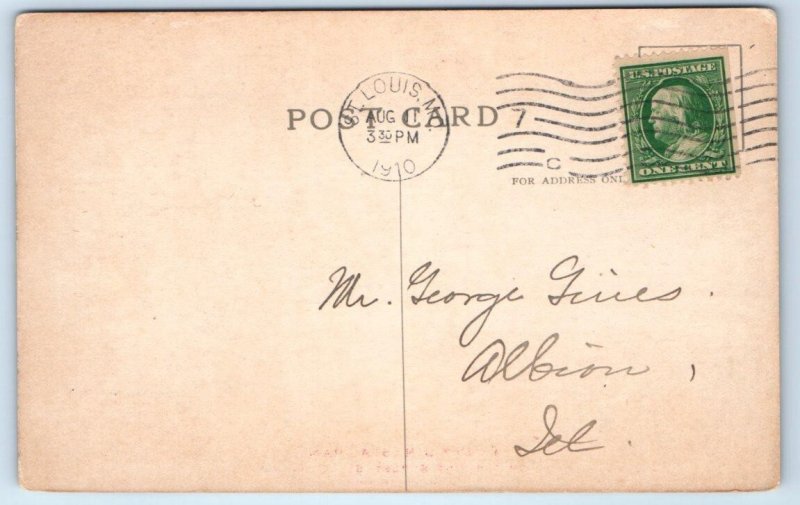 ST. LOUIS, MO.
AUG 11
3 30 PM
1910
POST CARD
7
C
U.S. POSTAGE
ONE CENT
FOR ADDRESS ONL
Mr. George Gines.
Albion,
Ill.